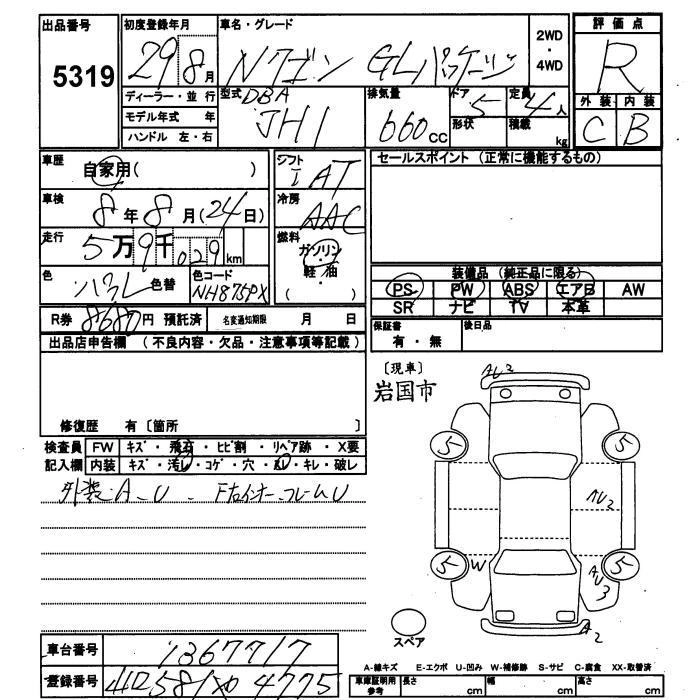 出品番号 5319
初度登録年月 29 8 月
車名・グレード Nワゴン GLパッケージ
2WD ・ 4WD
評価点 R
外装 内装
C B
ディーラー・並行
モデル年式 年
ハンドル 左・右
型式 DBA JH1
排気量 660 cc
ドア 5
形状
定員 4 人
積載 kg
車歴 自家用( )
車検 8 年 8 月(24日)
走行 5 万 9 千 029 km
色 色替
色コード NH875PX
シフト I AT
冷房 AAC
燃料 ガソリン ・ 軽・油 ( )
セールスポイント (正常に機能するもの)
装備品 (純正品に限る)
PS PW ABS エアB AW
SR ナビ TV 本革
R券 8680 円 預託済 名変通知期限 月 日
保証書 有・無
後日品
出品店申告欄 (不良内容・欠品・注意事項等記載)
修復歴 有〔箇所 〕
〔現車〕
岩国市
検査員 FW キズ・飛石・ヒビ割・リペア跡・X要
記入欄 内装 キズ・汚れ・コゲ・穴・スレ・キレ・破レ
外装:A、U Fインナーフレーム U
AU2
5 5
AU2
5 W AU3 5
スペア
A2
車台番号 1367717
登録番号 4775
A-線キズ E-エクボ U-凹み W-補修跡 S-サビ C-腐食 XX-取替済
車庫証明用参考 長さ cm 幅 cm 高さ cm